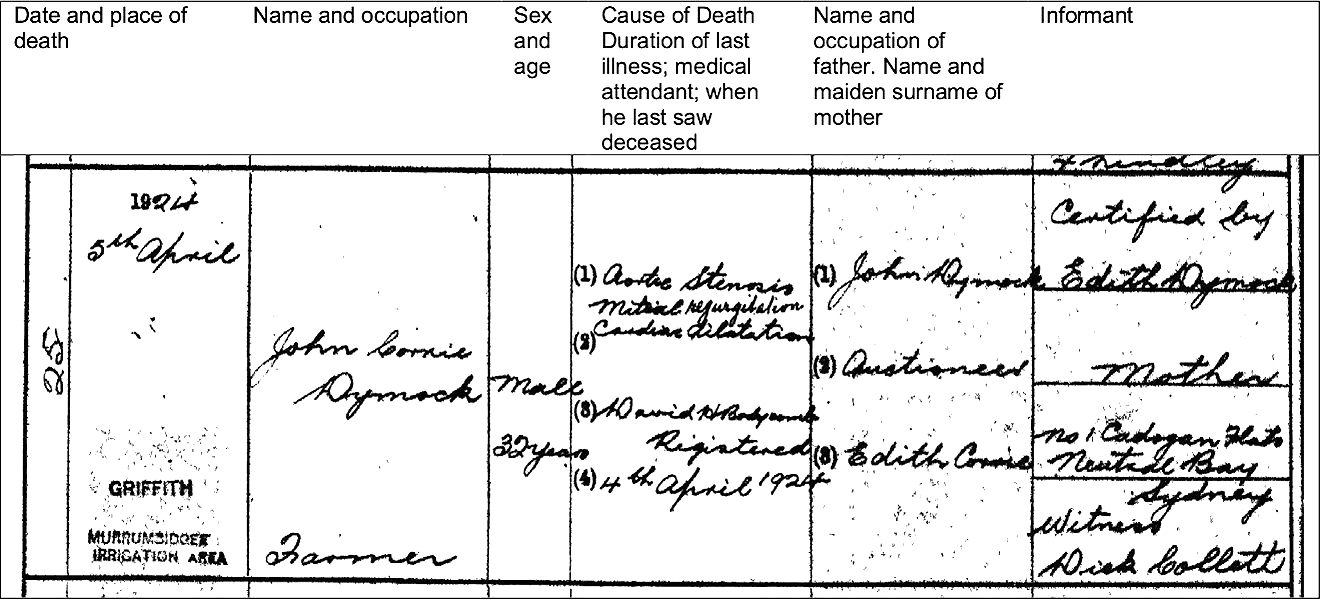 Date and place of
death
Name and occupation
Sex
and
age
Cause of Death
Duration of last
illness; medical
attendant; when
he last saw
deceased
Name and
occupation of
father. Name and
maiden surname of
mother
Informant
& Lindley
25
1924
5th April
GRIFFITH
MURRUMBIDGEE
IRRIGATION AREA
John Corrie
Dymock
Farmer
Male
32 years
(1) Aortic Stenosis
Mitral regurgitation
Cardiac dilatation
(2)
(3) David H Bodycomb
Registered
(4) 4th April 1924
(1) John Dymock
(2) Auctioneer
(3) Edith Corrie
Certified by
Edith Dymock
Mother
No 1 Cadogan Flats
Neutral Bay
Sydney
Witness
Dick Collett